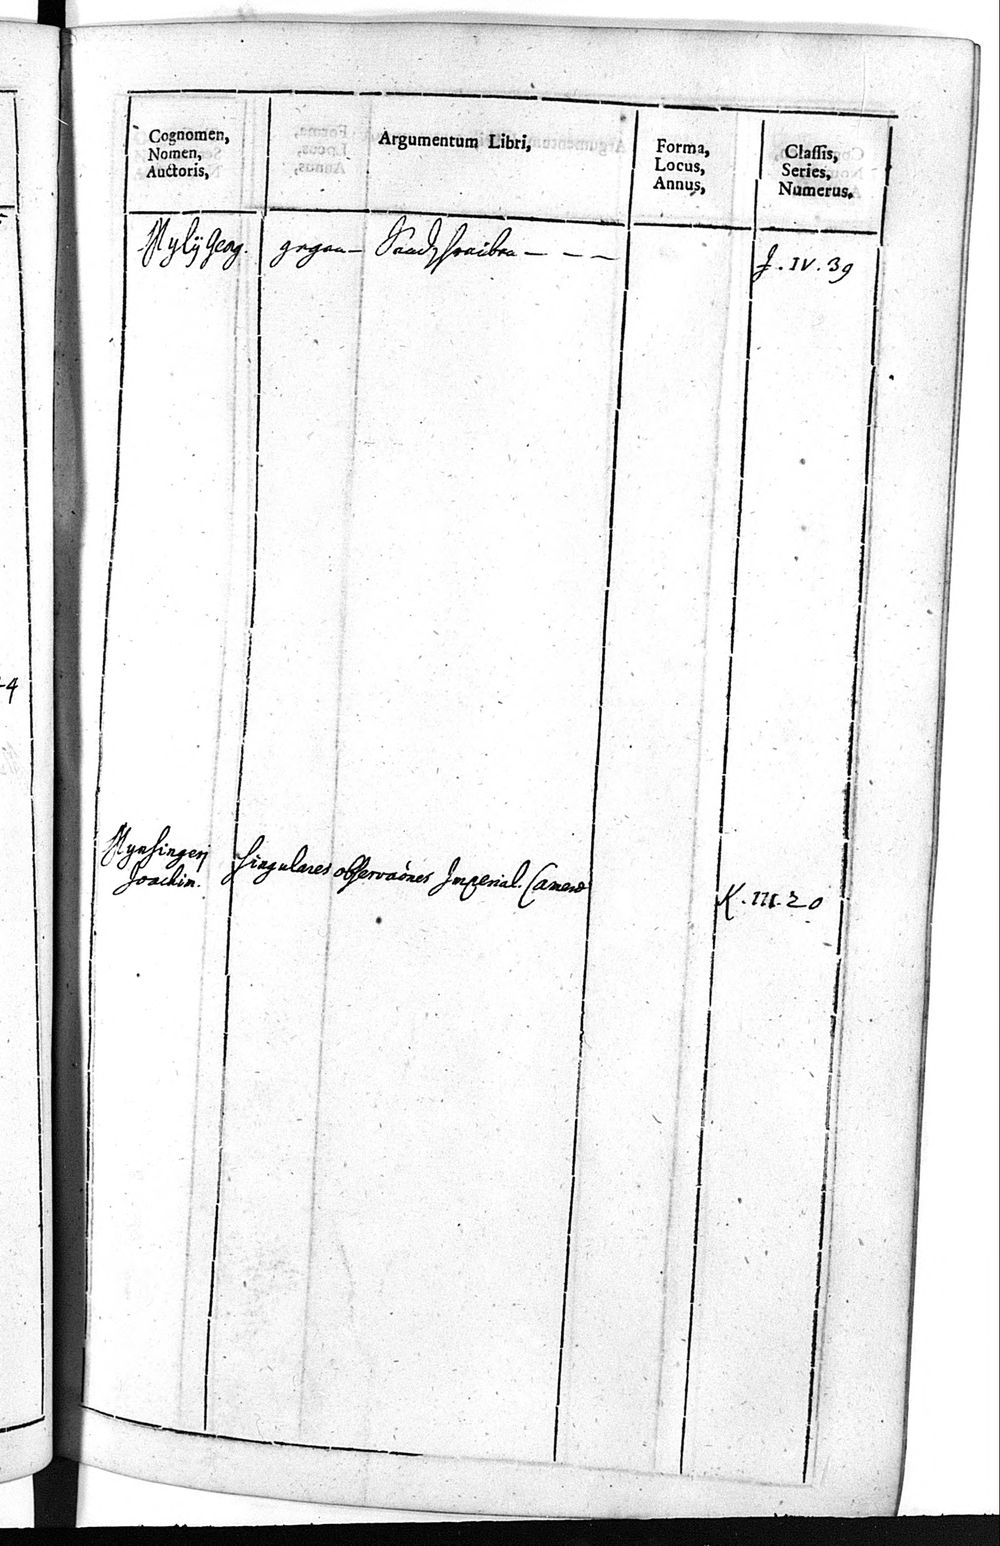 Cognomen,
Nomen,
Auctoris,
Argumentum Libri,
Forma,
Locus,
Annus,
Classis,
Series,
Numerus.
Mylij Georg.
gegen Sendschreiben - - -
J. IV. 39
4
Mynsingeri
Joachim.
Singulares observaōnes Imperial. Camerae
K. III. 20